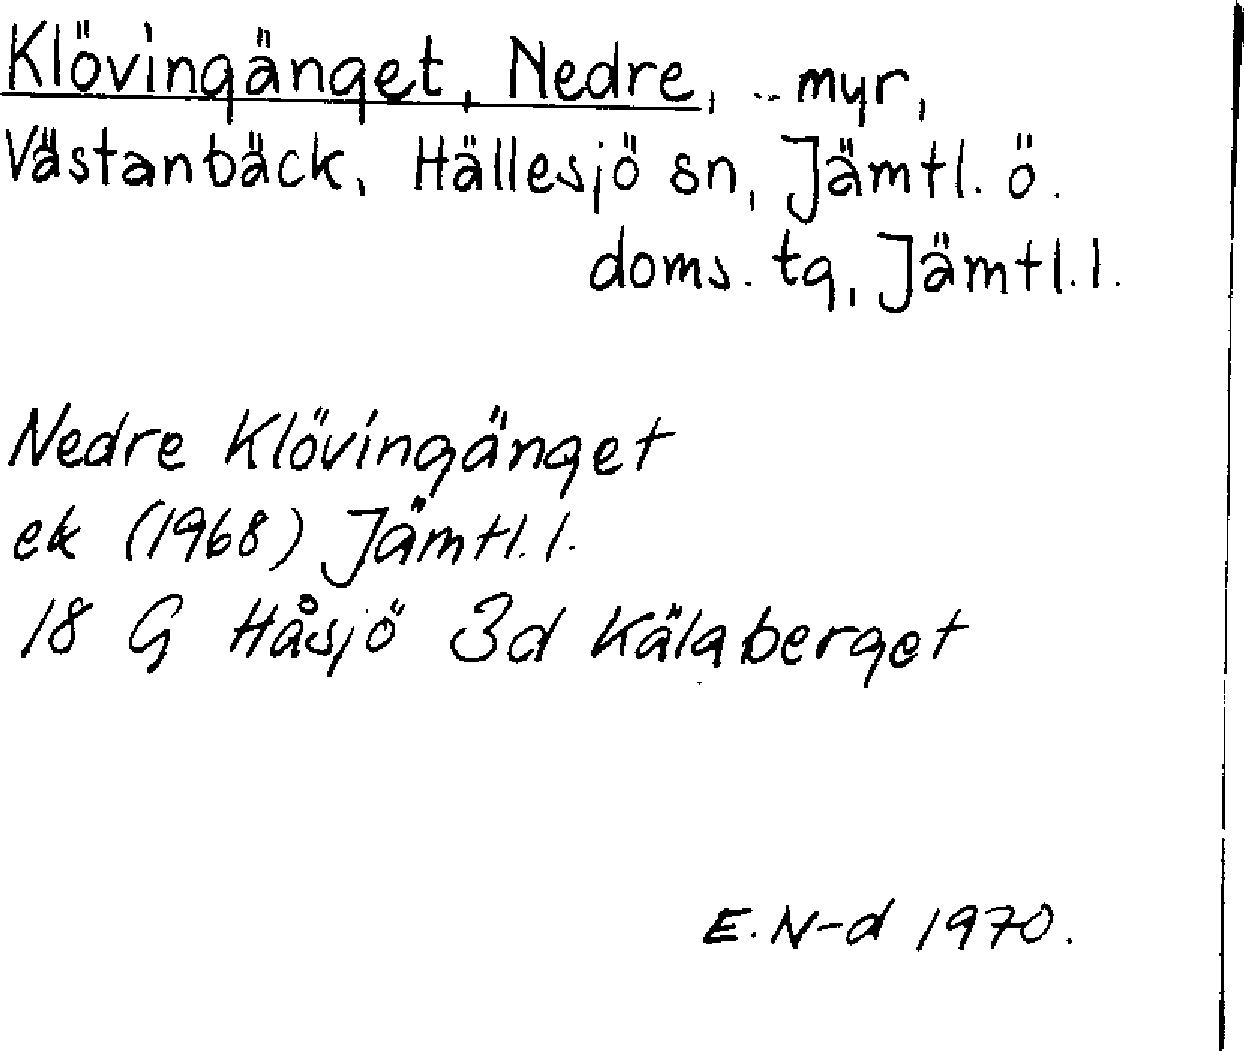 Klövingänget, Nedre, .. myr,
Västanbäck, Hällesjö sn, Jämtl. ö.
doms. tg, Jämtl. l.
Nedre Klövingänget
ek (1968) Jämtl. l.
18 G Håsjö 3d Kälaberget
E. N-d 1970.